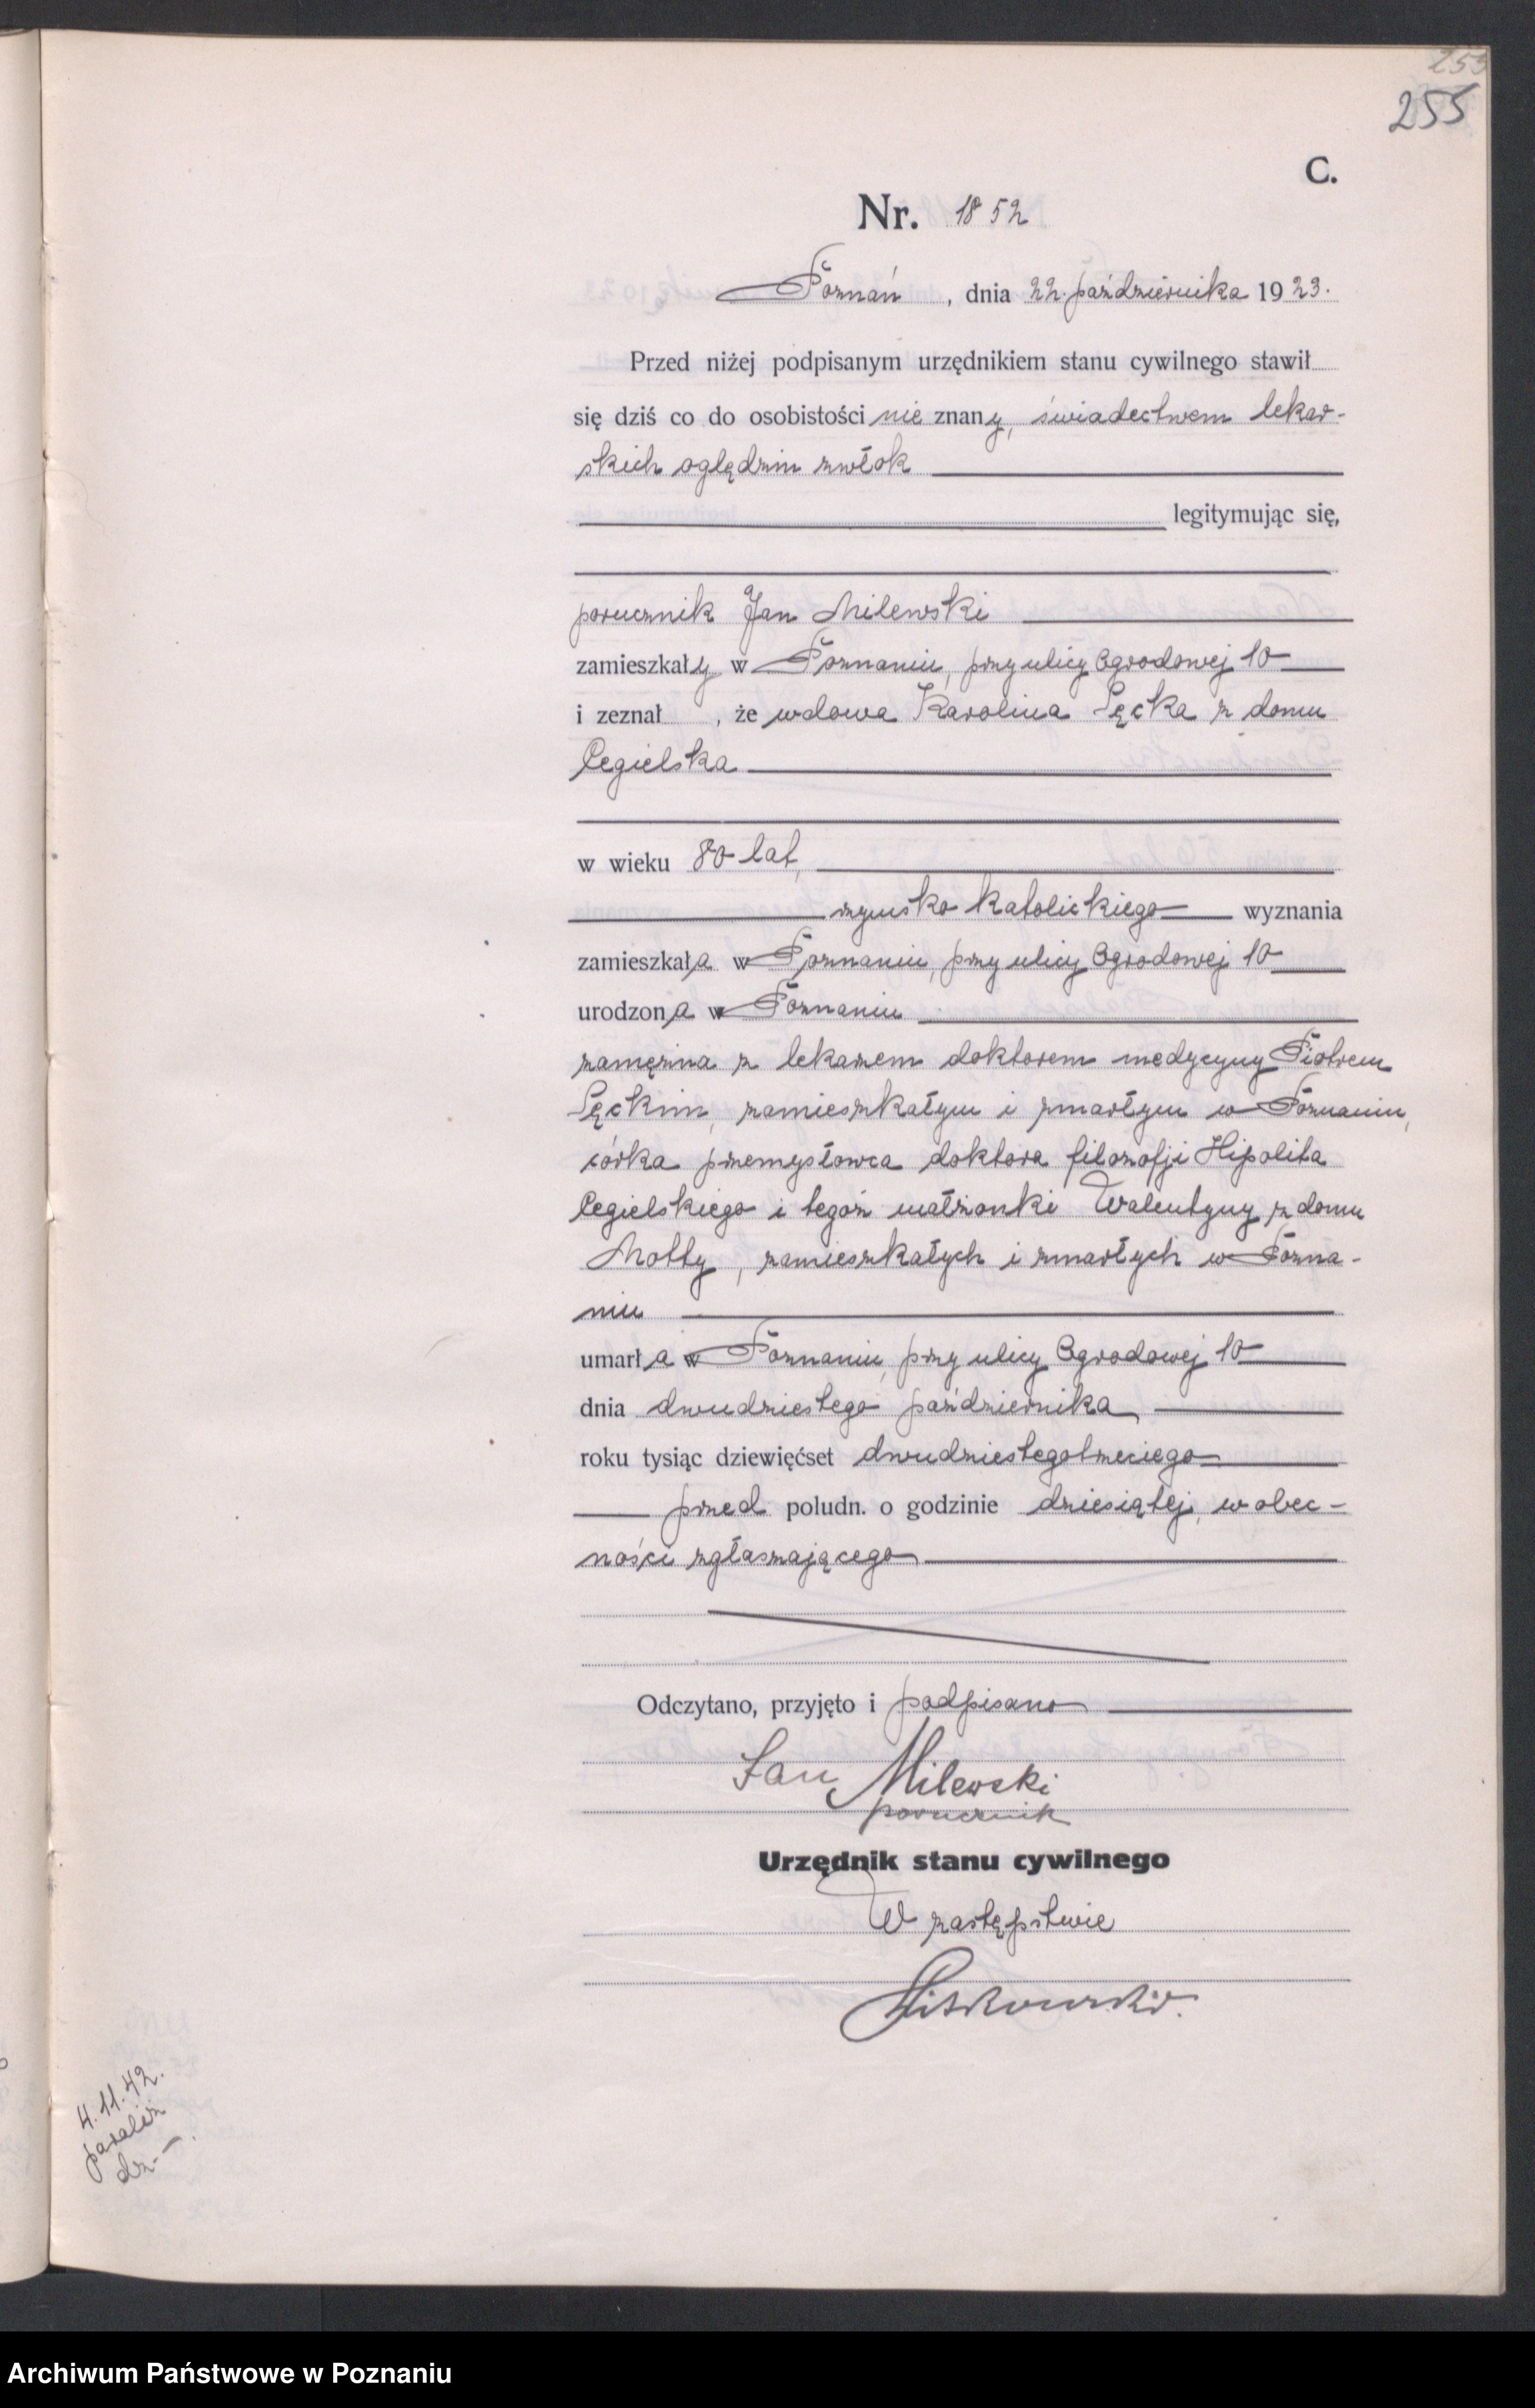 253
255
C.
Nr. 1852
Poznań, dnia 22. października 1923.
Przed niżej podpisanym urzędnikiem stanu cywilnego stawił
się dziś co do osobistości nie znany, świadectwem lekar-
skich oględzin zwłok
legitymując się,
porucznik Jan Milewski
zamieszkały w Poznaniu, przy ulicy Ogrodowej 10
i zeznał, że wdowa Karolina Sęcka z domu
Cegielska
w wieku 80 lat,
rzymsko katolickiego wyznania
zamieszkała w Poznaniu, przy ulicy Ogrodowej 10
urodzona w Poznaniu
zamężna z lekarzem doktorem medycyny Piotrem
Sęckim, zamieszkałym i zmarłym w Poznaniu,
córka przemysłowca doktora filozofji Hipolita
Cegielskiego i tegoż małżonki Walentyny z domu
Motty, zamieszkałych i zmarłych w Pozna-
niu
umarła w Poznaniu, przy ulicy Ogrodowej 10
dnia dwudziestego października
roku tysiąc dziewięćset dwudziestegotrzeciego
przed poludn. o godzinie dziesiątej, w obec-
ności zgłaszającego
Odczytano, przyjęto i podpisano
Jan Milewski
porucznik
Urzędnik stanu cywilnego
W zastępstwie
4.11.42.
paraliż
Archiwum Państwowe w Poznaniu